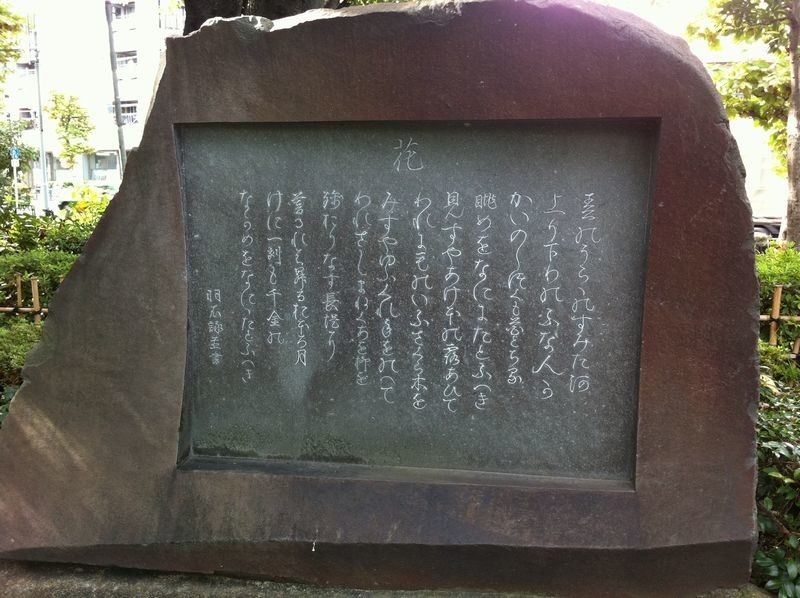 花
春のうらゝのすみた河
上り下りのふな人か
かいのしつくも花とちる
眺めをなにゝたとふへき
見すやあけほの露あひて
われにものいふさくら木を
みすやゆふくれ手をのへて
われさしまねく青柳を
錦おりなす長堤に
暮るれは昇るおほろ月
けに一刻も千金の
なかめをなにゝたとふへき
羽衣詠并書